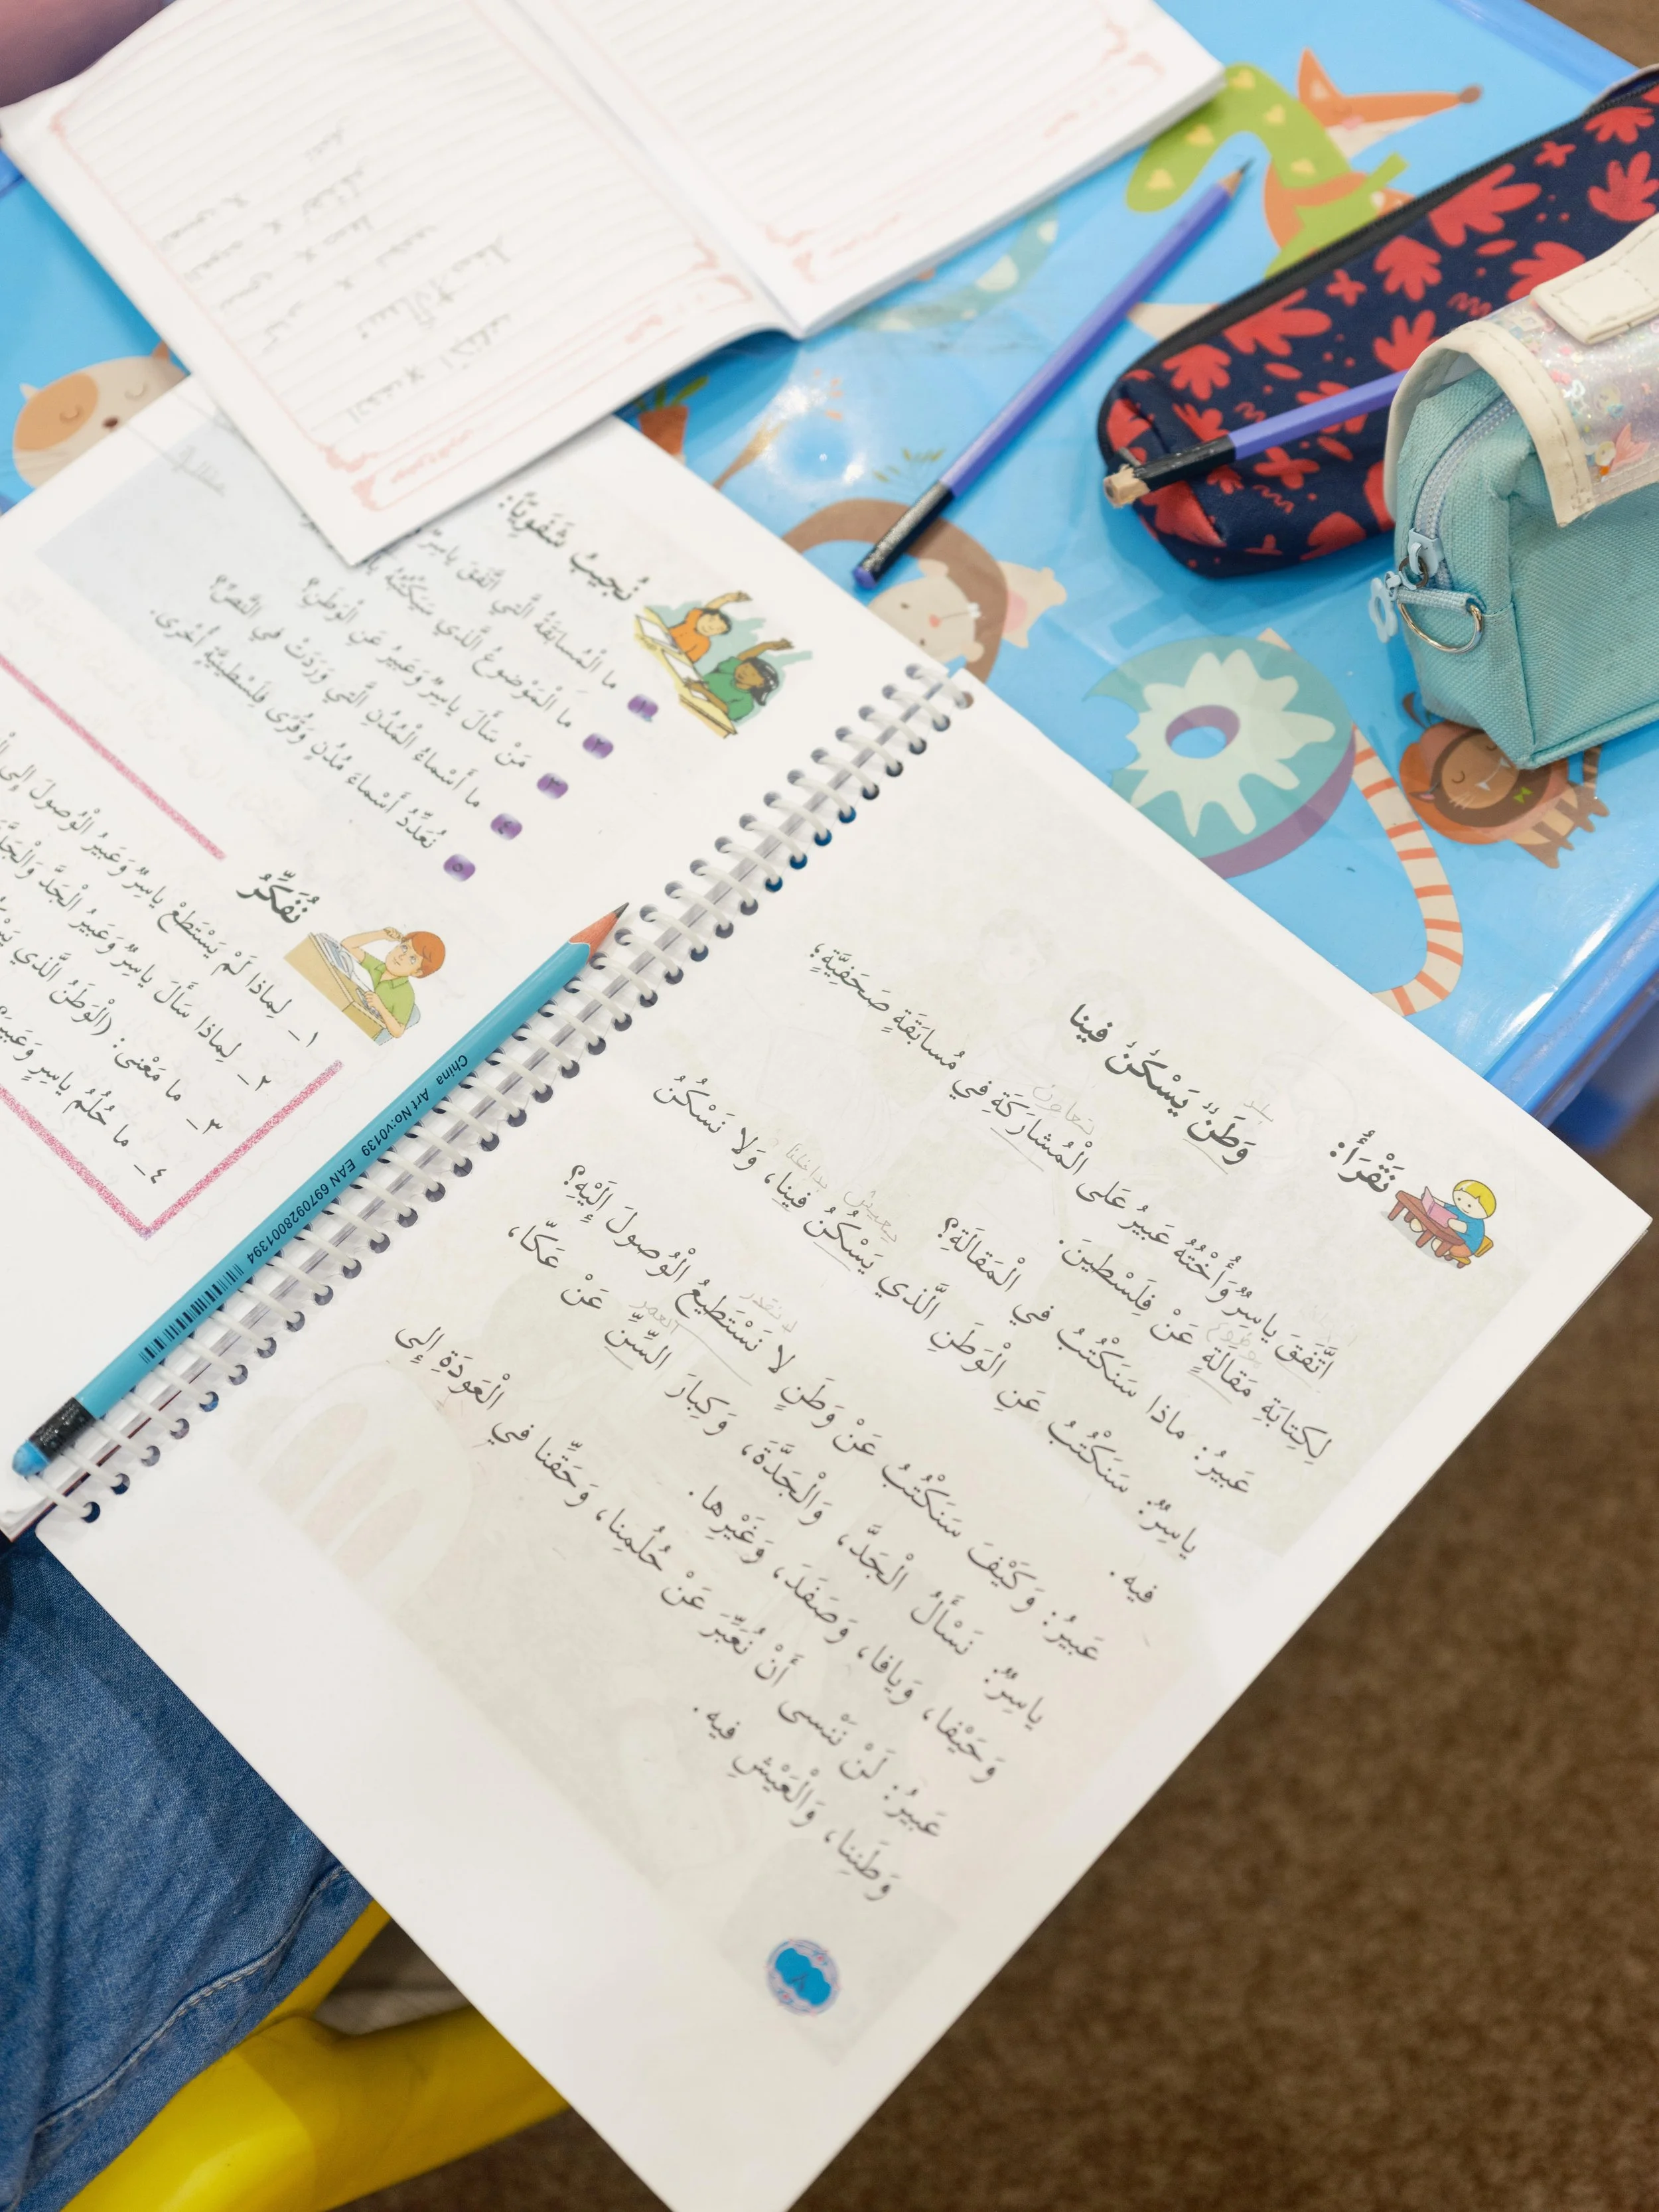 نَقْرَأُ:
وَطَنٌ يَسْكُنُ فينا
بلد
تعاون
اتَّفَقَ ياسِرٌ وَأُخْتُهُ عَبيرُ عَلى الْمُشارَكَةِ في مُسابَقَةٍ صَحَفِيَّةٍ؛
لِكِتابَةِ مَقالَةٍ عَنْ فِلَسْطينَ.
عَبيرُ: ماذا سَنَكْتُبُ في الْمَقالَةِ؟
يعيش بداخلنا
ياسِرٌ: سَنَكْتُبُ عَنِ الْوَطَنِ الَّذي يَسْكُنُ فينا، وَلا نَسْكُنُ
فيه.
لا نقدر
عَبيرُ: وَكَيْفَ سَنَكْتُبُ عَنْ وَطَنٍ لا نَسْتَطيعُ الْوُصولَ إِلَيْهِ؟
العمر
ياسِرٌ: نَسْأَلُ الْجَدَّ، وَالْجَدَّةَ، وَكِبارَ السِّنِّ عَنْ عَكّا،
وَحَيْفا، وَيافا، وَصَفَدَ، وَغَيْرِها.
عَبيرُ: لَنْ نَنْسى أَنْ نُعَبِّرَ عَنْ حُلُمِنا، وَحَقِّنا في الْعَودَةِ إِلى
وَطَنِنا، وَالْعَيْشِ فيه.
٨
نُجيبُ شَفَوِيّاً:
١ ما الْمُسابَقَةُ الَّتي اتَّفَقَ ياسِرٌ
٢ ما الْمَوْضوعُ الَّذي سَيَكْتُبُهُ
٣ مَنْ سَأَلَ ياسِرٌ وَعَبيرُ عَنِ الْوَطَنِ؟
٤ ما أَسْماءُ الْمُدُنِ الَّتي وَرَدَتْ في النَّصِّ؟
٥ نُعَدِّدُ أَسْماءَ مُدُنٍ وَقُرًى فِلَسْطينِيَّةٍ أُخْرى.
نُفَكِّرُ
١_ لِماذا لَمْ يَسْتَطِعْ ياسِرٌ وَعَبيرُ الْوُصولَ إِلى
٢_ لِماذا سَأَلَ ياسِرٌ وَعَبيرُ الْجَدَّ وَالْجَدَّةَ
٣_ ما مَعْنى: (الْوَطَنُ الَّذي
٤_ ما حُلُمُ ياسِرٍ وَعَبيرَ؟
China Art No:v0139 EAN 6970928001394